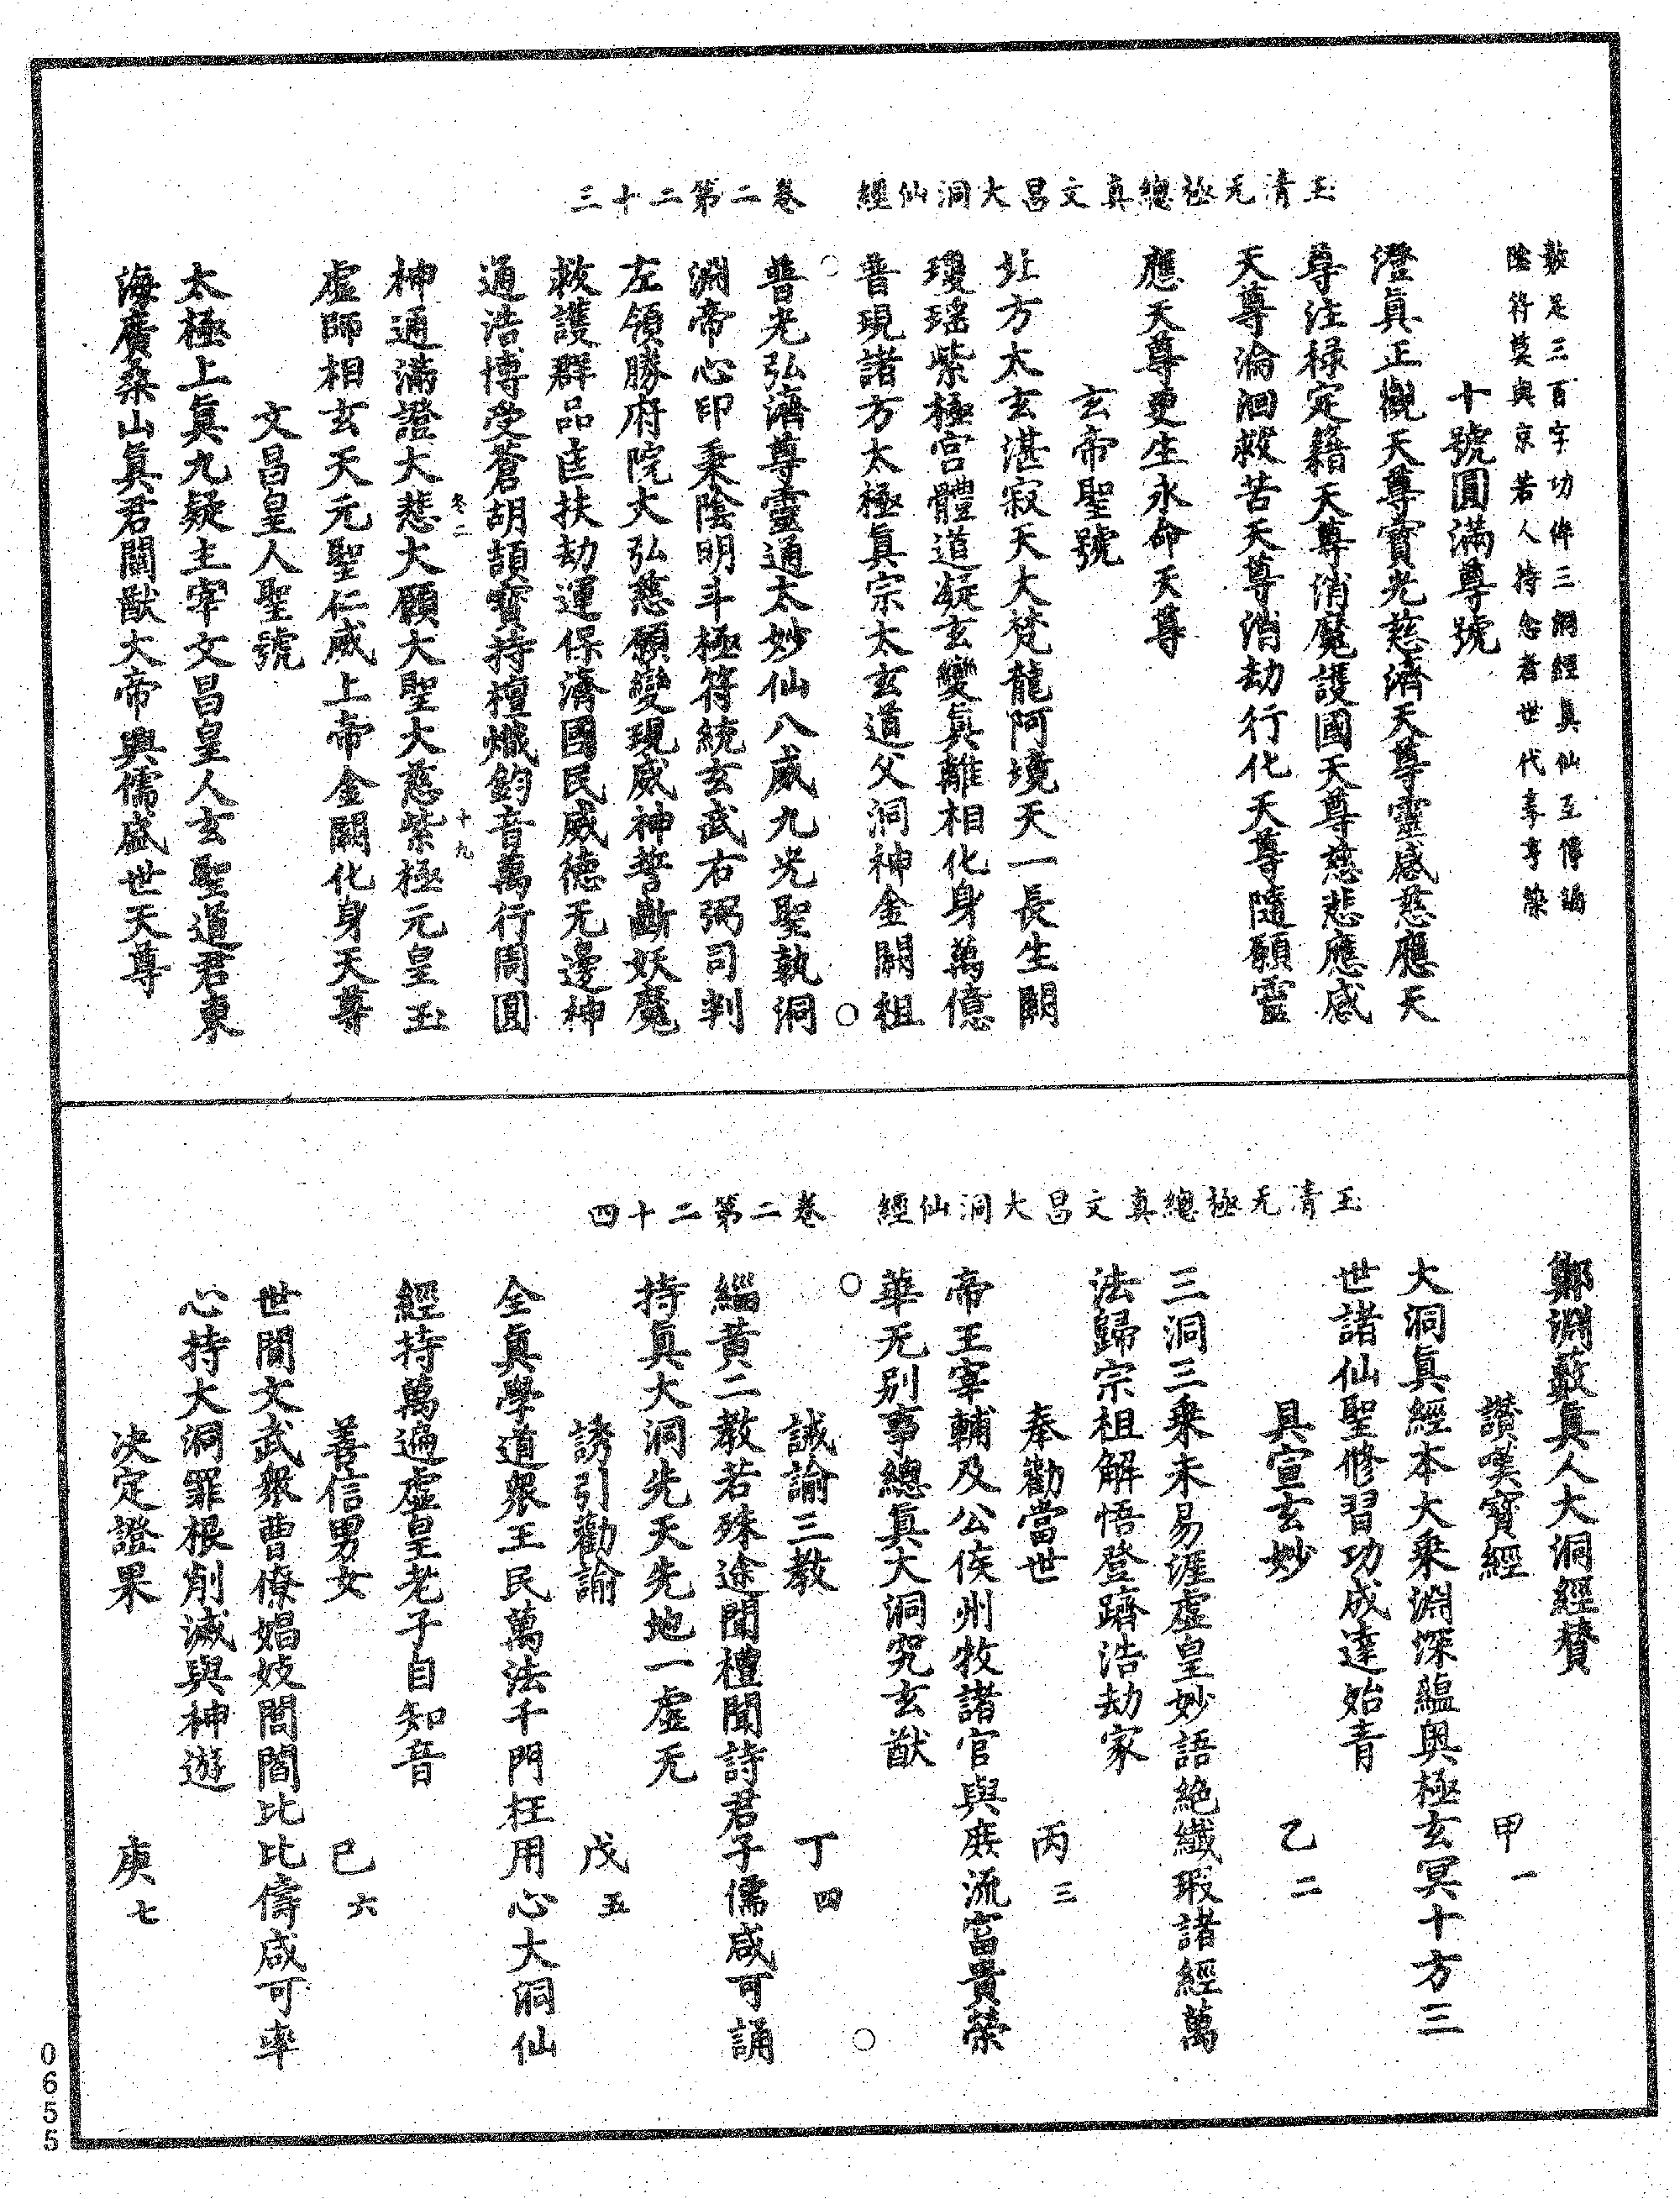 玉清无極總真文昌大洞仙經　卷二第二十三
數足三百字功俾三洞經真仙互傳誦
陰符莫與京若人持念者世代享亨榮
十號圓滿尊號
澄真正觀天尊寶光慈濟天尊靈感慈應天
尊注祿定籍天尊消魔護國天尊慈悲應感
天尊淪洄救苦天尊消劫行化天尊隨願靈
應天尊更生永命天尊
玄帝聖號
北方太玄湛寂天大梵龍阿境天一長生闕
瓊瑤紫極宮體道凝玄變真離相化身萬億
普現諸方太極真宗太玄道父洞神金闕祖
普光弘濟尊靈通太妙仙八威九光聖執洞
淵帝心印秉陰明斗極符統玄武右弼司判
左領勝府院大弘慈願變現威神誓斷妖魔
救護群品匡扶劫運保濟國民威德无邊神
通浩博受蒼胡頡寶持檀熾鈞音萬行周圓
神通滿證大悲大願大聖大慈紫極元皇玉
冬二　十九
虛師相玄天元聖仁威上帝金闕化身天尊
文昌皇人聖號
太極上真九疑主宰文昌皇人玄聖道君東
海廣桑山真君闡猷大帝興儒盛世天尊
玉清无極總真文昌大洞仙經　卷二第二十四
鄭淵藪真人大洞經贊
讚嘆寶經　甲一
大洞真經本大乘淵深蘊奧極玄冥十方三
世諸仙聖修習功成達始青
具宣玄妙　乙二
三洞三乘未易涯虛皇妙語絕纖瑕諸經萬
法歸宗祖解悟登躋浩劫家
奉勸當世　丙三
帝王宰輔及公侯州牧諸官與庶流富貴榮
華无別事總真大洞究玄猷
誠諭三教　丁四
緇黃二教若殊途聞禮聞詩君子儒咸可誦
持真大洞先天先地一虛无
誘引勸諭　戊五
全真學道眾王民萬法千門枉用心大洞仙
經持萬遍虛皇老子自知音
善信男女　己六
世間文武眾曹僚娼妓閭閻比比儔咸可率
心持大洞罪根削滅與神遊
決定證果　庚七
0655